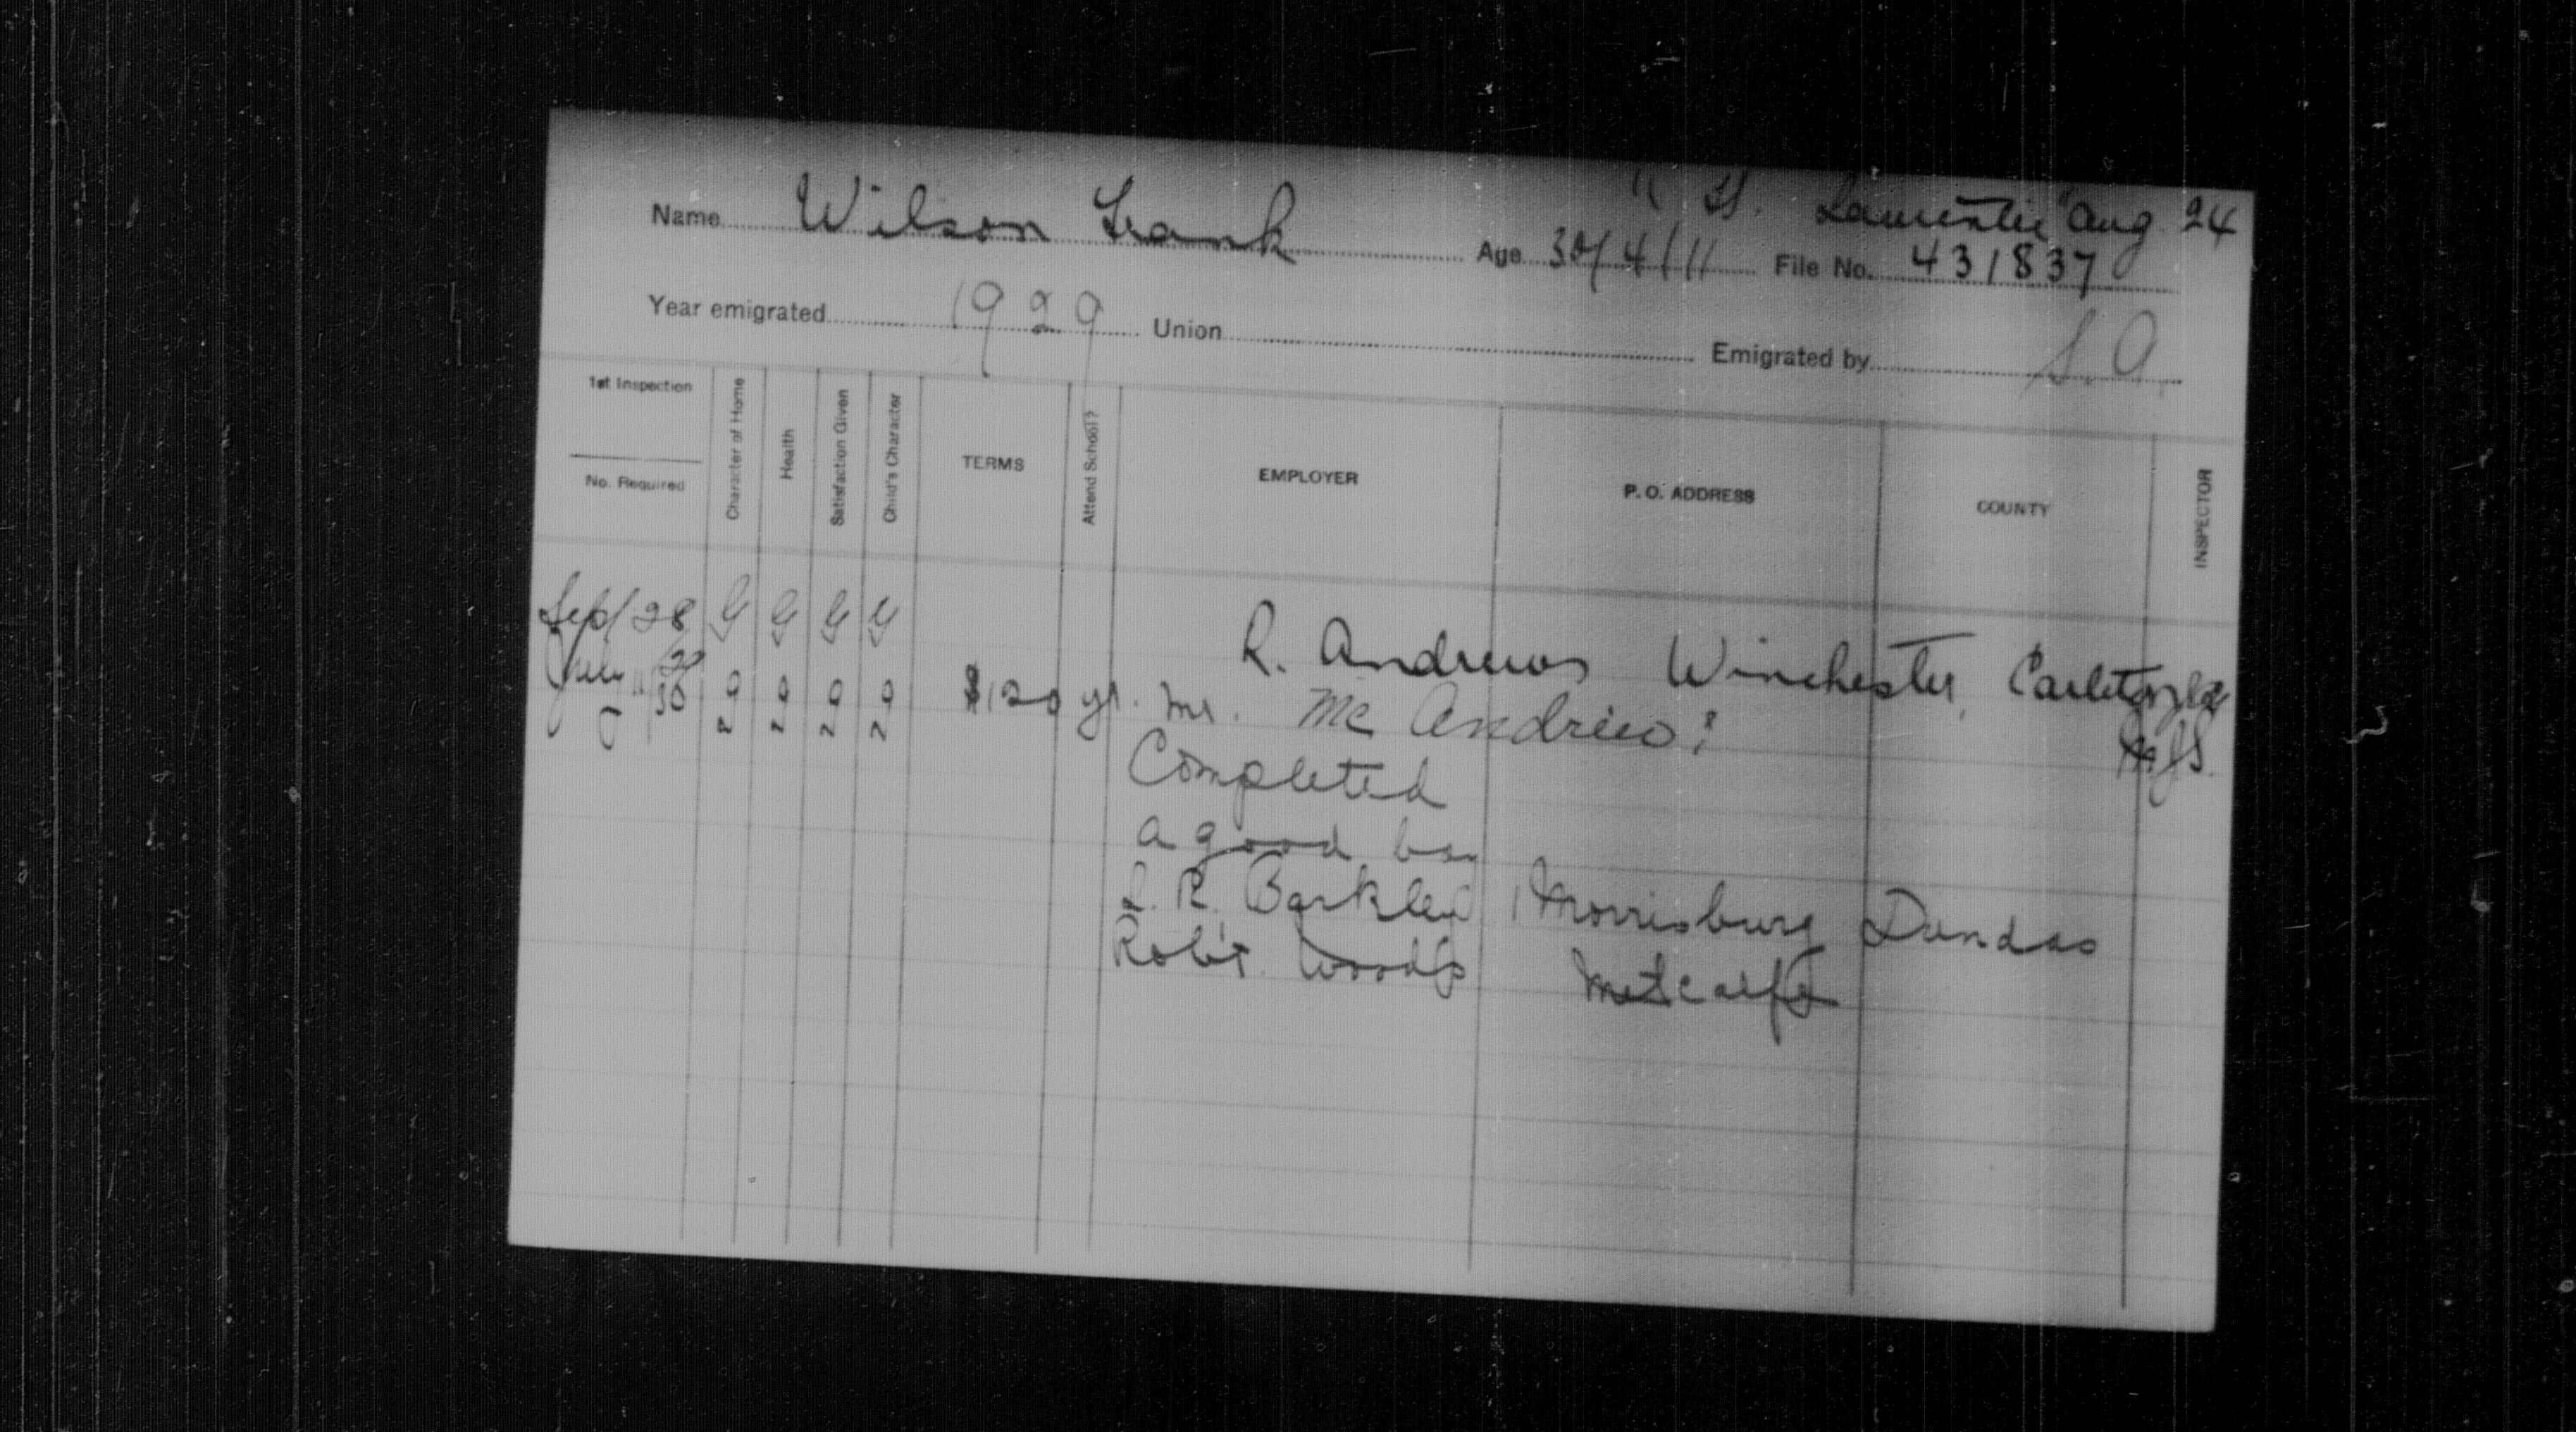 " SS. Laurentic" Aug. 24
Name Wilson Frank Age 30/4/11 File No. 431837
Year emigrated 1929 Union Emigrated by S.A.
1st Inspection
No. Required
Character of Home
Health
Satisfaction Given
Child's Character
TERMS
Attend School?
EMPLOYER
P. O. ADDRESS
COUNTY
INSPECTOR
Sept 28/29 G G G G R. Andrews Winchester, Carleton
July 11/30 g g g g $120 yr. Mr. McAndrew?
Completed
a good boy
R. Barkley Morrisburg Dundas
Rob't. Woods Metcalfe